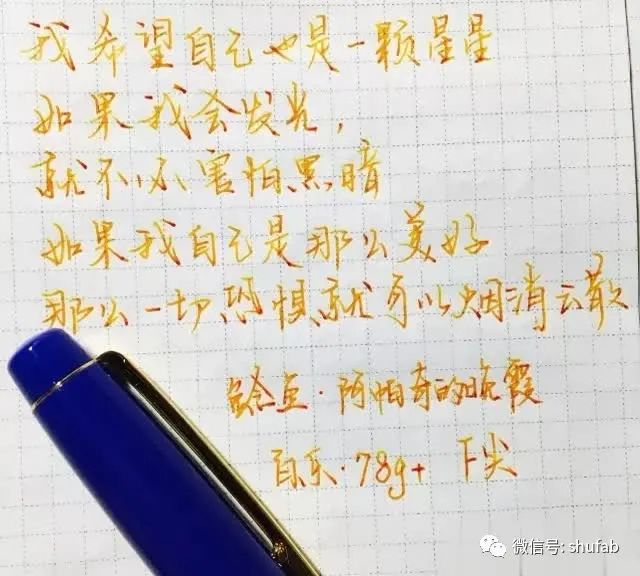 我希望自己也是一颗星星
如果我会发光,
就不必害怕黑暗
如果我自己是那么美好
那么一切恐惧就可以烟消云散
鲶鱼·阿帕奇的晚霞
百乐·78g+ F尖
微信号: shufab